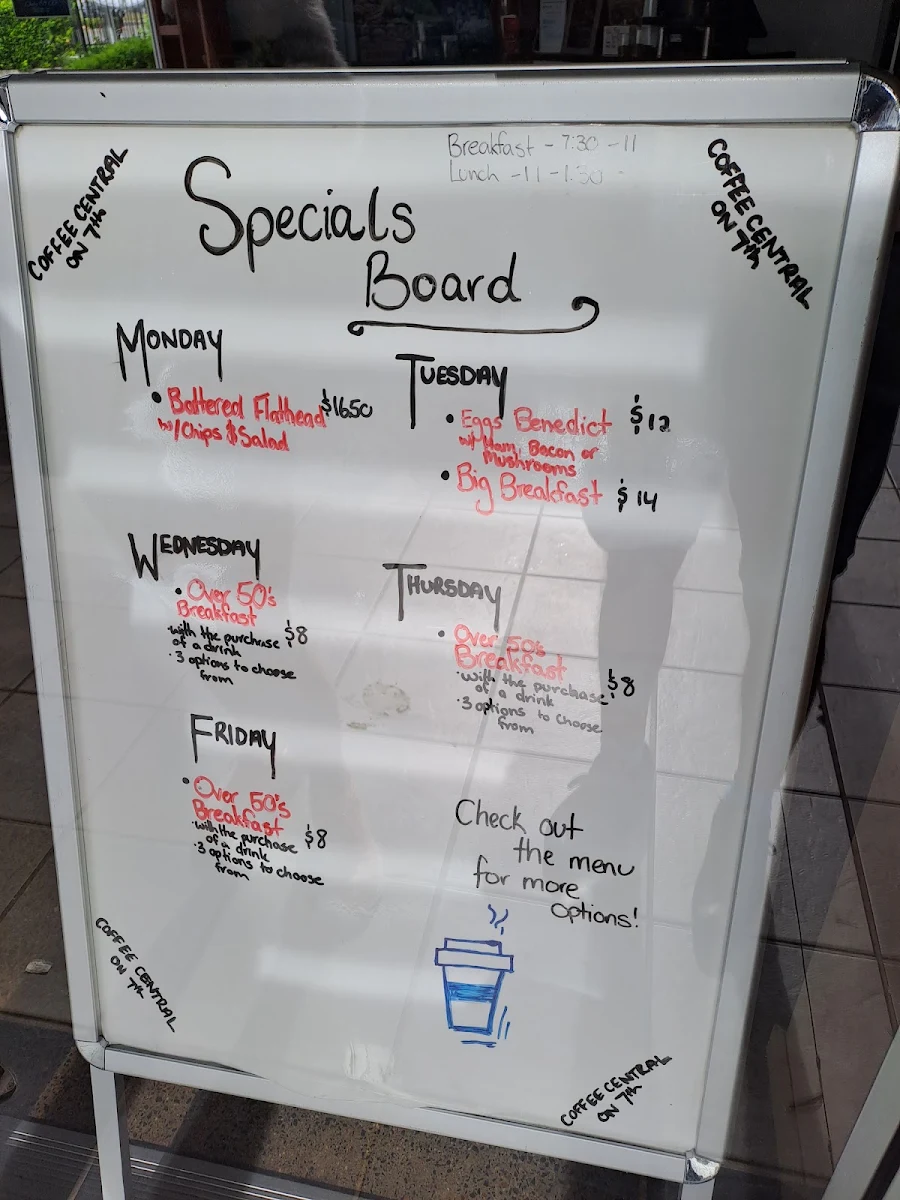 Breakfast - 7:30 - 11
Lunch - 11 - 1:30 -
COFFEE CENTRAL
ON 7th
COFFEE CENTRAL
ON 7th
Specials
Board
MONDAY
• Battered Flathead $16.50
w/Chips & Salad
TUESDAY
• Eggs Benedict $12
w/ Ham, Bacon or
Mushrooms
• Big Breakfast $14
WEDNESDAY
• Over 50's
Breakfast
• with the purchase $8
of a drink
• 3 options to choose
from
THURSDAY
• Over 50's
Breakfast
• with the purchase $8
of a drink
• 3 options to choose
from
FRIDAY
• Over 50's
Breakfast
• with the purchase $8
of a drink
• 3 options to choose
from
Check out
the menu
for more
options!
COFFEE CENTRAL
ON 7th
COFFEE CENTRAL
ON 7th